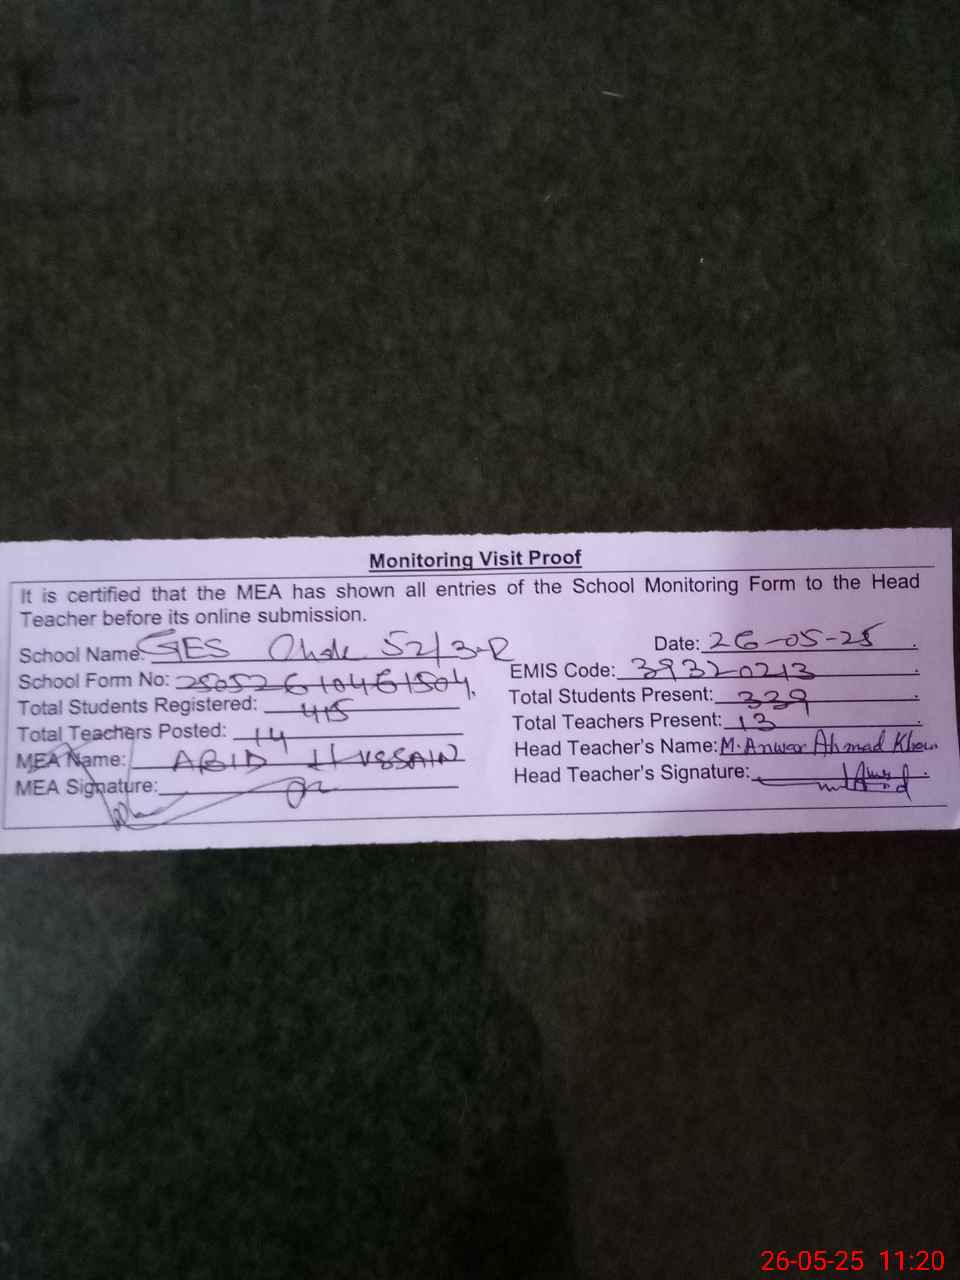 Monitoring Visit Proof
It is certified that the MEA has shown all entries of the School Monitoring Form to the Head
Teacher before its online submission.
School Name: GES 52/3-R Date: 26-05-25
School Form No: 25052610461504 EMIS Code: 39320213
Total Students Registered: 415 Total Students Present: 339
Total Teachers Posted: 14 Total Teachers Present: 13
MEA Name: ABID HUSSAIN Head Teacher's Name: M. Anwar Ahmad Khan
MEA Signature: Head Teacher's Signature:
26-05-25 11:20